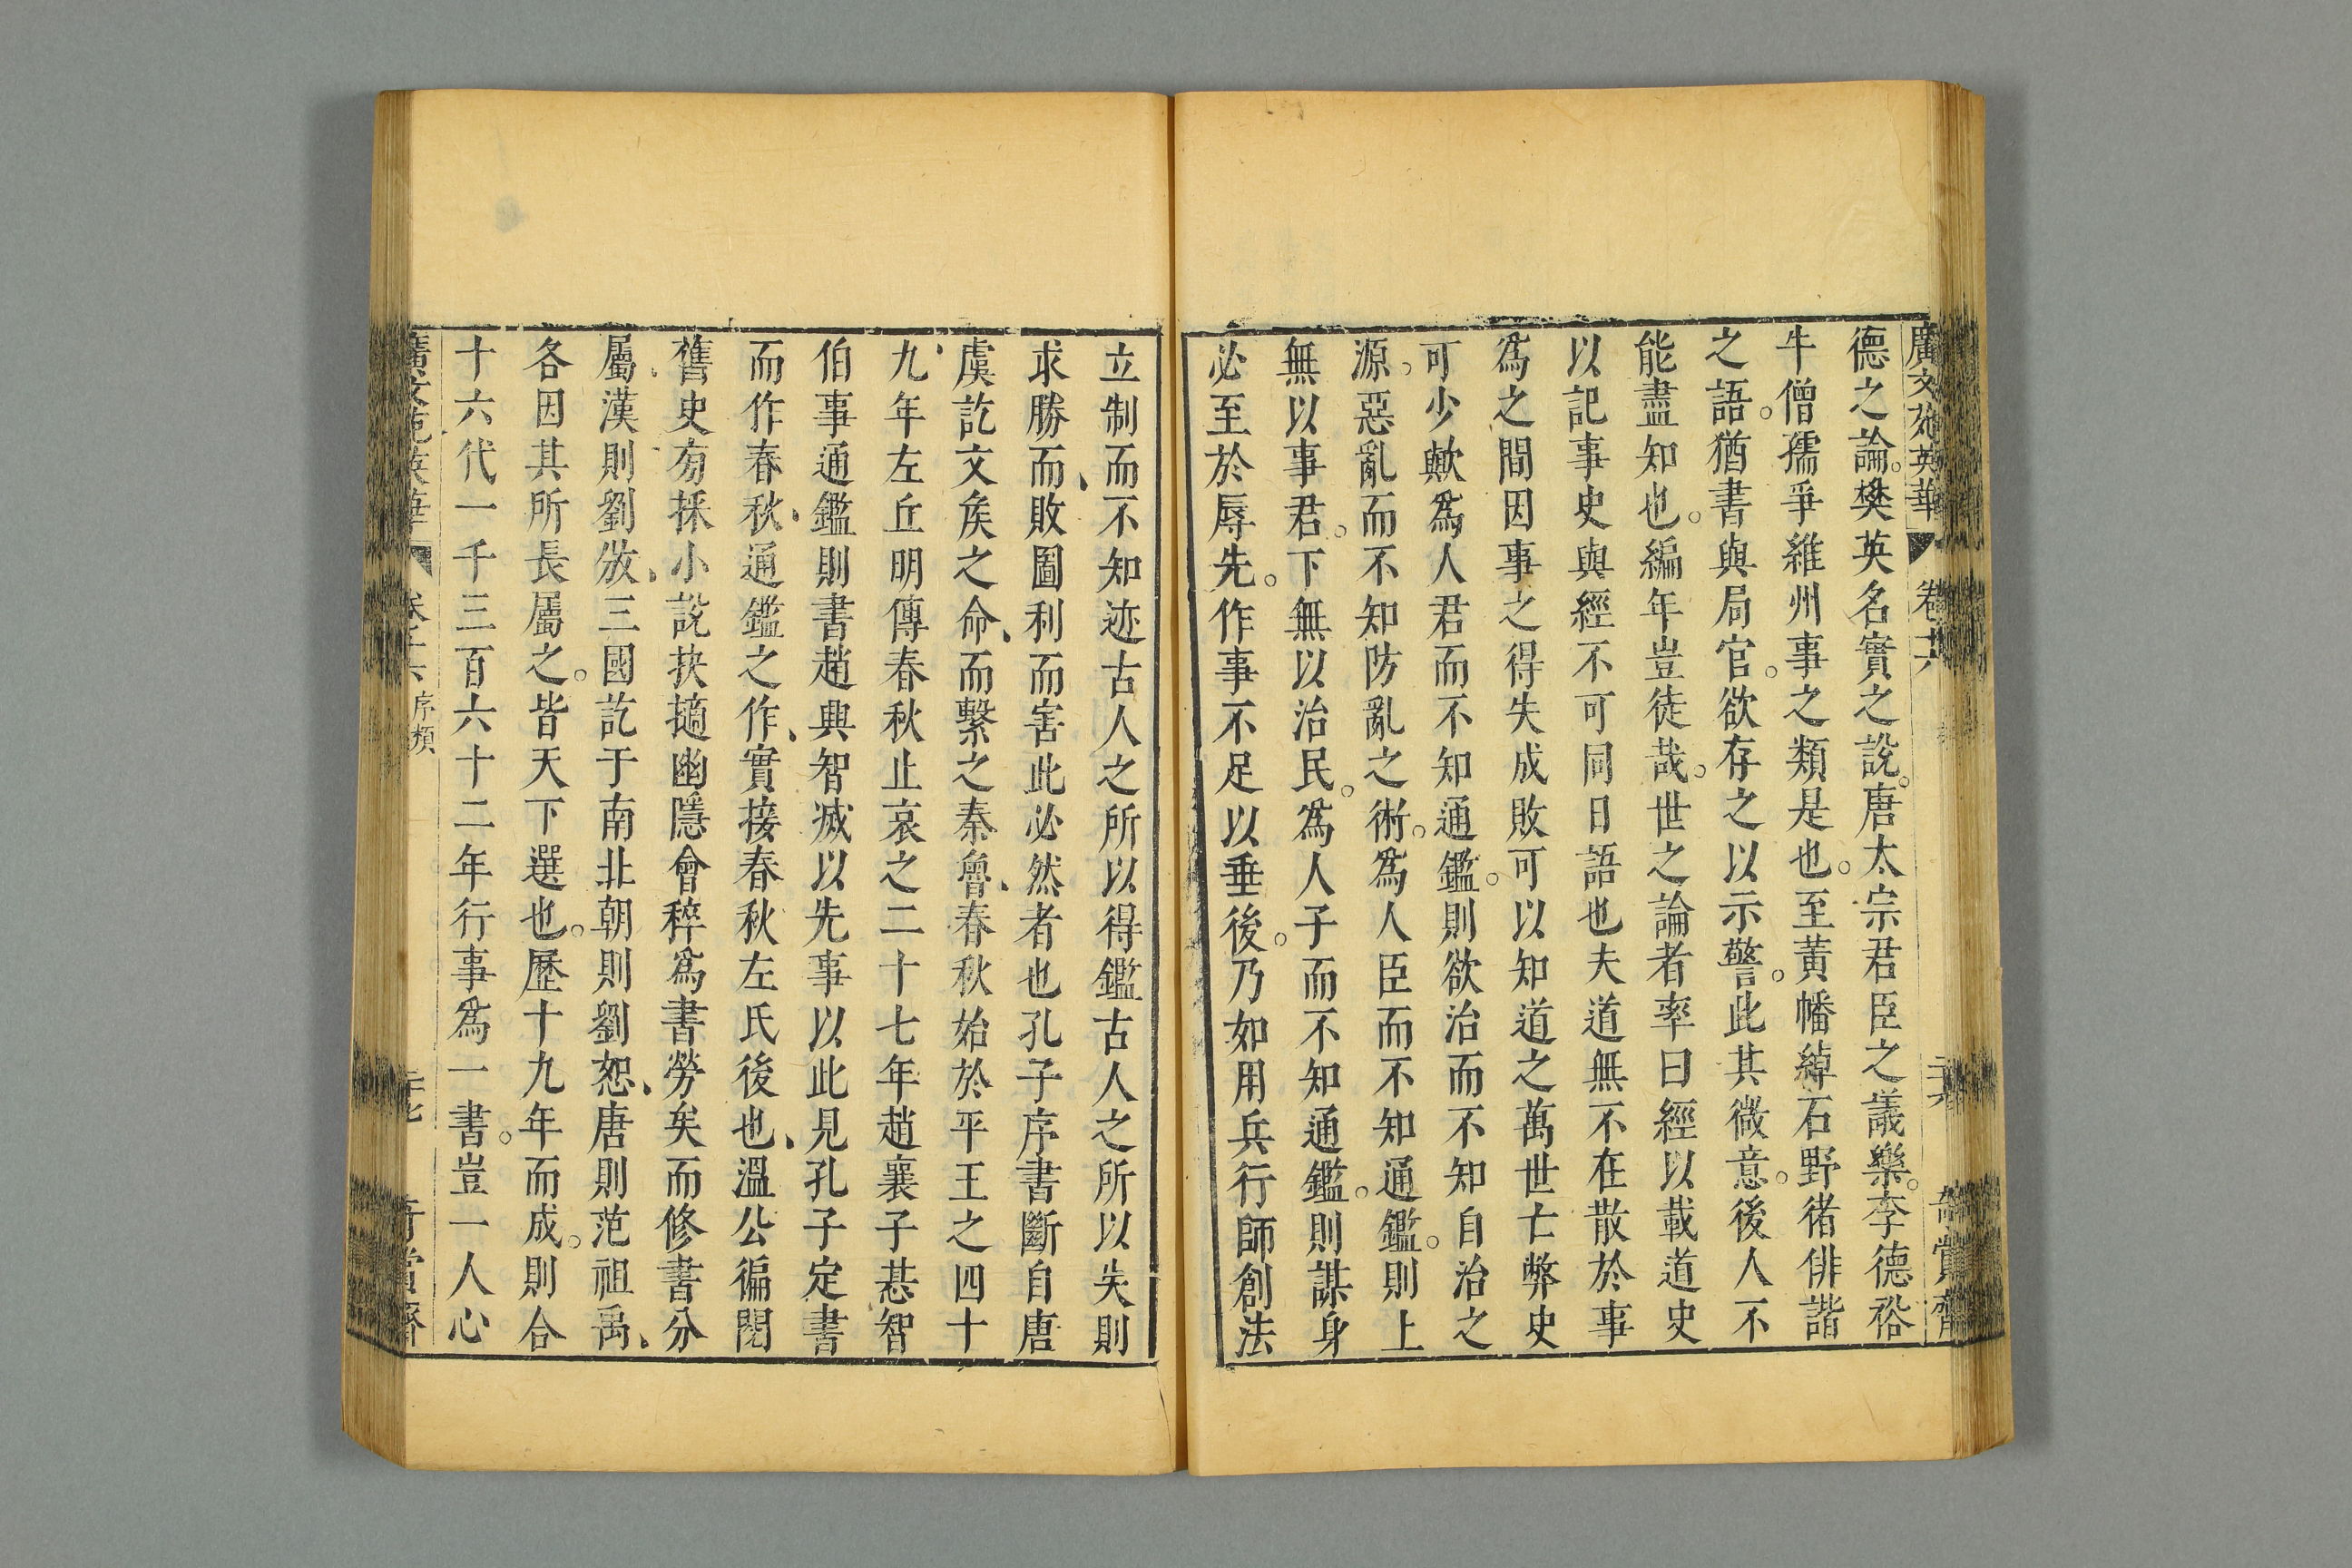 廣文苑英華 卷十六 奇賞齋
德之論。樊英名實之說。唐太宗君臣之議樂。李德裕
牛僧孺爭維州事之類是也。至黃幡綽石野猪俳諧
之語。猶書與局官。欲存之以示警。此其微意。後人不
能盡知也。編年豈徒哉。世之論者率曰經以載道史
以記事史與經不可同日語也夫道無不在散於事
爲之間因事之得失成敗可以知道之萬世亡弊史
可少歟爲人君而不知通鑑。則欲治而不知自治之
源。惡亂而不知防亂之術。爲人臣而不知通鑑。則上
無以事君。下無以治民。爲人子而不知通鑑。則謀身
必至於辱先。作事不足以垂後。乃如用兵行師創法
立制而不知迹古人之所以得鑑古人之所以失則
求勝而敗圖利而害此必然者也孔子序書斷自唐
虞訖文矦之命、而繫之秦魯、春秋始於平王之四十
九、年左丘明傳春秋止哀之二十七年趙襄子惎智
伯事通鑑則書趙興智滅以先事以此見孔子定書
而作春秋、通鑑之作、實接春秋左氏後也、溫公徧閱
舊史㫄採小說抉擿幽隱會稡爲書勞矣而修書分
屬、漢則劉攽、三國訖于南北朝則劉恕、唐則范祖禹、
各因其所長屬之。皆天下選也。歷十九年而成。則合
十六代一千三百六十二年行事爲一書。豈一人心
廣文苑英華 序類 奇賞齋